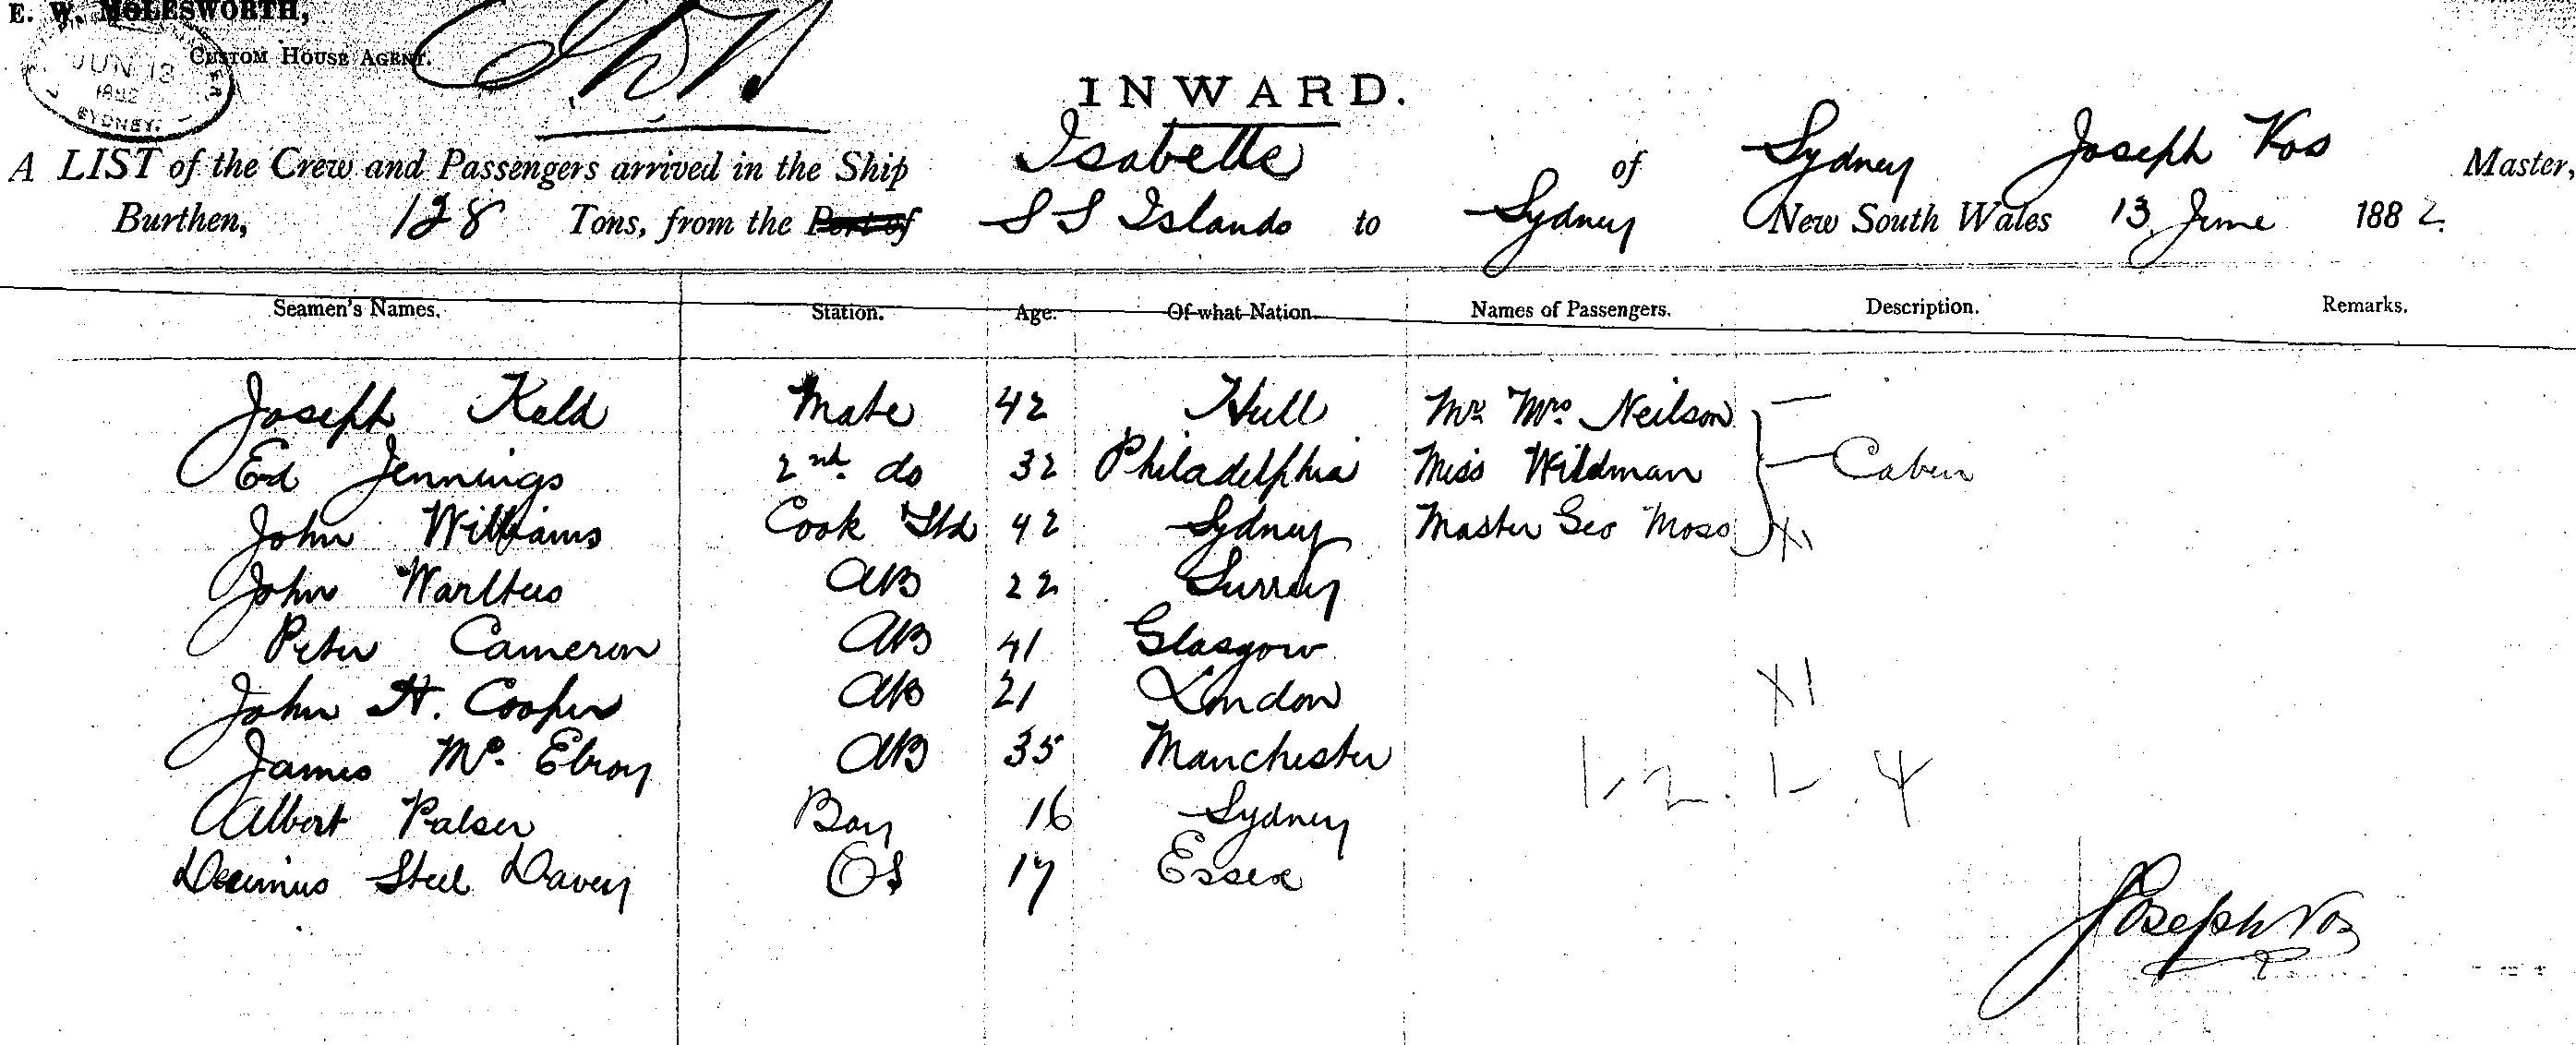 E. W. MOLESWORTH,
CUSTOM HOUSE AGENT.
JUN 13
1882
SYDNEY.
INWARD.
A LIST of the Crew and Passengers arrived in the Ship Isabelle of Sydney Joseph Vos Master,
Burthen, 128 Tons, from the Port of S S Islands to Sydney New South Wales 13 June 1882.
Seamen's Names. Station. Age. Of what Nation. Names of Passengers. Description. Remarks.
Joseph Keld Mate 42 Hull Mr Mrs Neilson —
Ed Jennings 2nd do 32 Philadelphia Miss Wildman — Cabin
John Williams Cook Std 42 Sydney Master Geo Moss X1
John AB 22 Surrey
Peter Cameron AB 41 Glasgow
John H. Cooper AB 21 London X1
James Mc Elroy AB 35 Manchester 1 - 2 . 1 - . 4
Albert Palser Boy 16 Sydney
Decimus Steel Davey OS 17 Essex
Joseph Vos